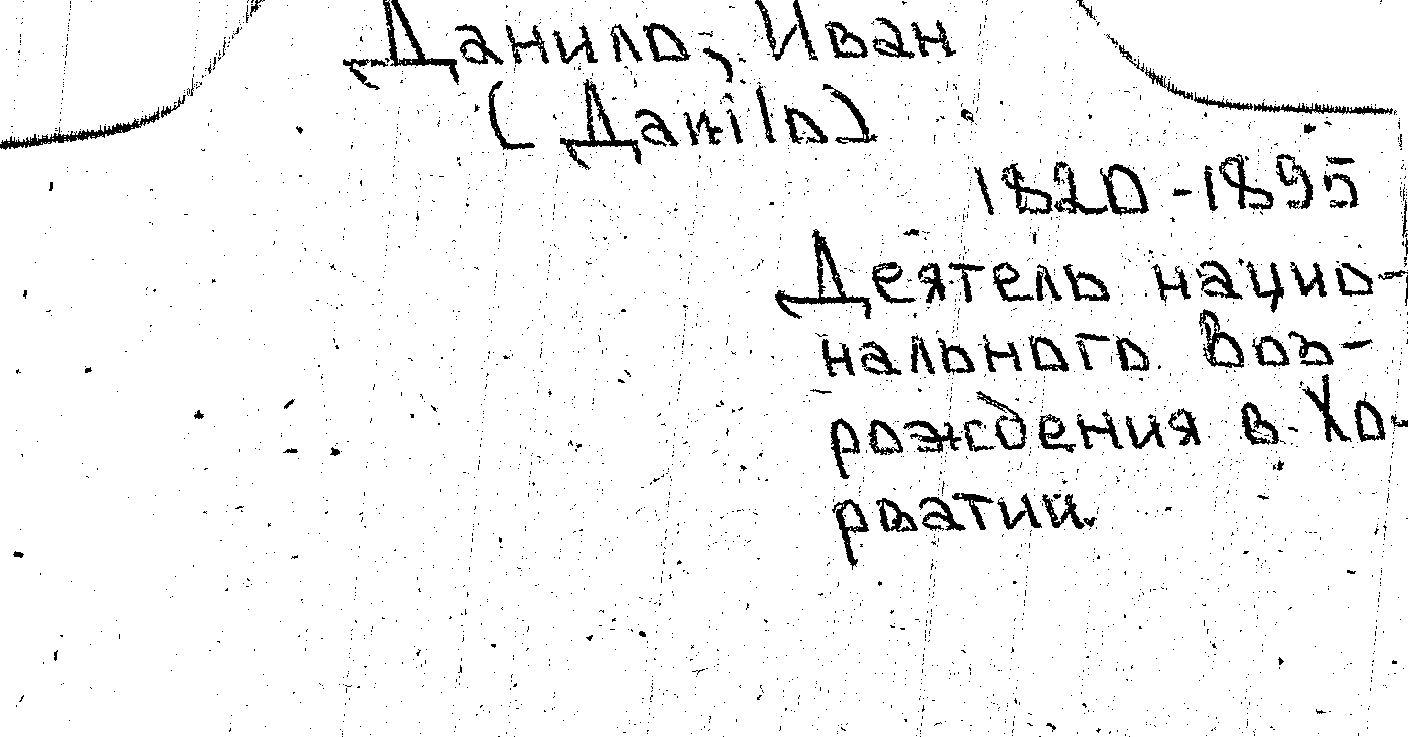 Данило, Иван
(Даnilo)
1820-1895
Деятель нацио-
нального Воз-
рождения в Хо-
рватии.